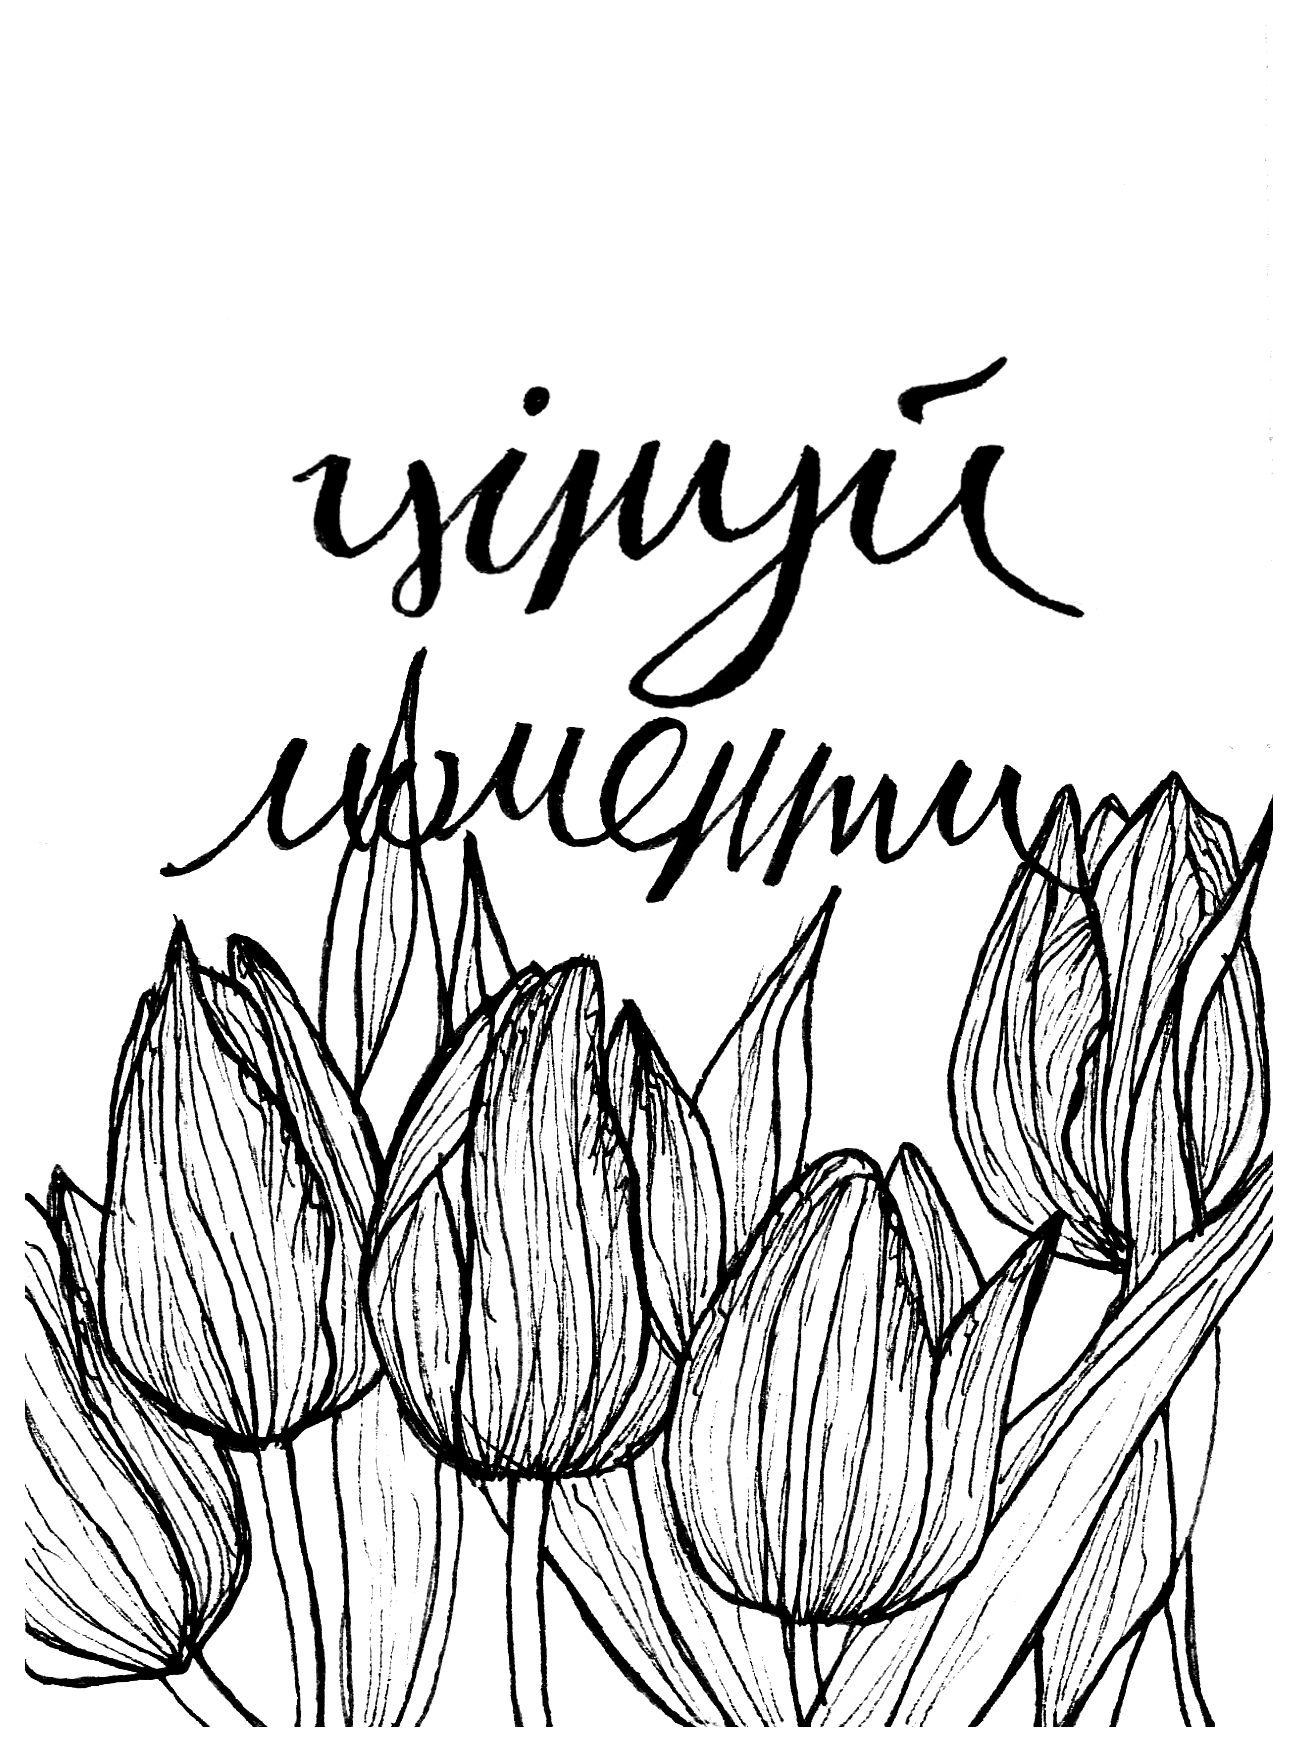 цінуй
моменти